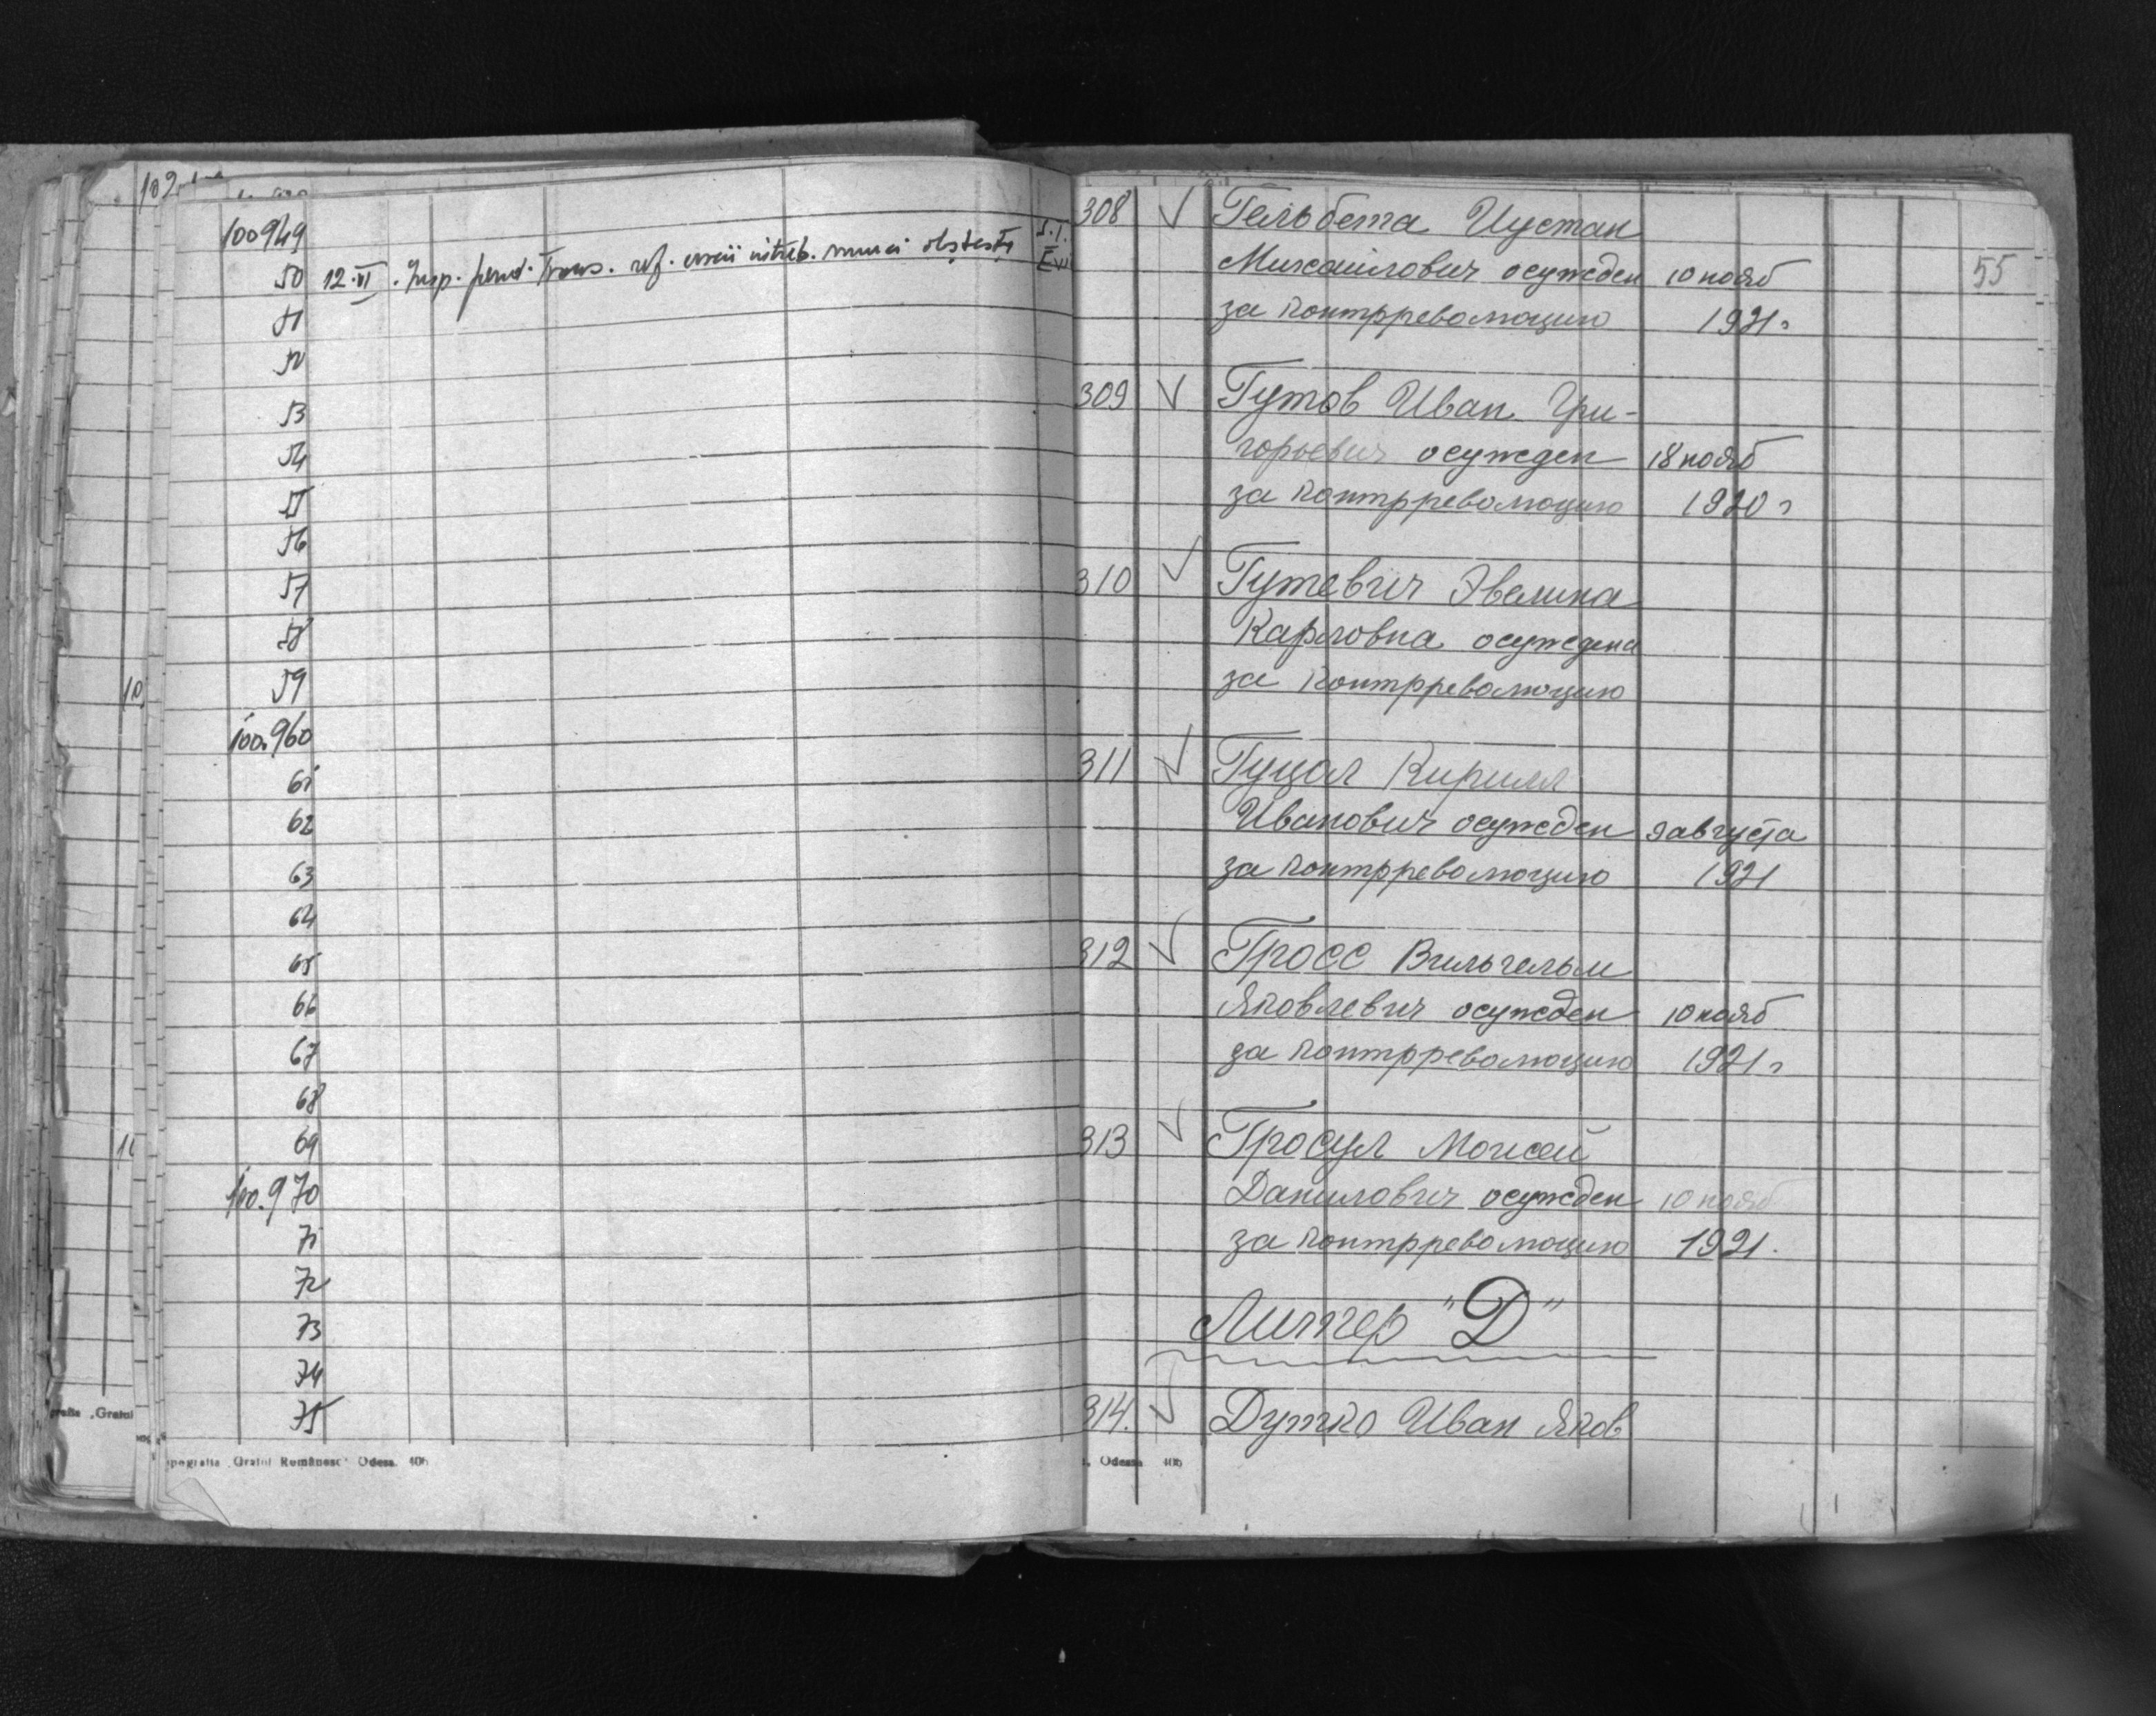 102
100949
50 12.VI. Insp. Jand. Trans. ref.
51
52
53
54
55
56
57
58
59
100.960
61
62
63
64
65
66
67
68
69
100.970
71
72
73
74
75
Tipografia „Gratul Românesc" Odesa. 406
55
308 √ Гельбета Иустан
Михайлович осужден 10 нояб
за контрреволюцию 1921г
309 √ Гутов Иван Гри-
горьевич осужден 18 нояб
за контрреволюцию 1920 г
310 √ Гутевич Эвелина
Карловна осуждена
за контрреволюцию
311 √ Гуцал Кирилл
Иванович осужден 9 августа
за контрреволюцию 1921
312 √ Гросс Вильгельм
Яковлевич осужден 10 нояб
за контрреволюцию 1921 г
313 √ Гросул Моисей
Данилович осужден 10 нояб
за контрреволюцию 1921.
Литер "Д"
314. √ Дутко Иван Яков
Odessa 406